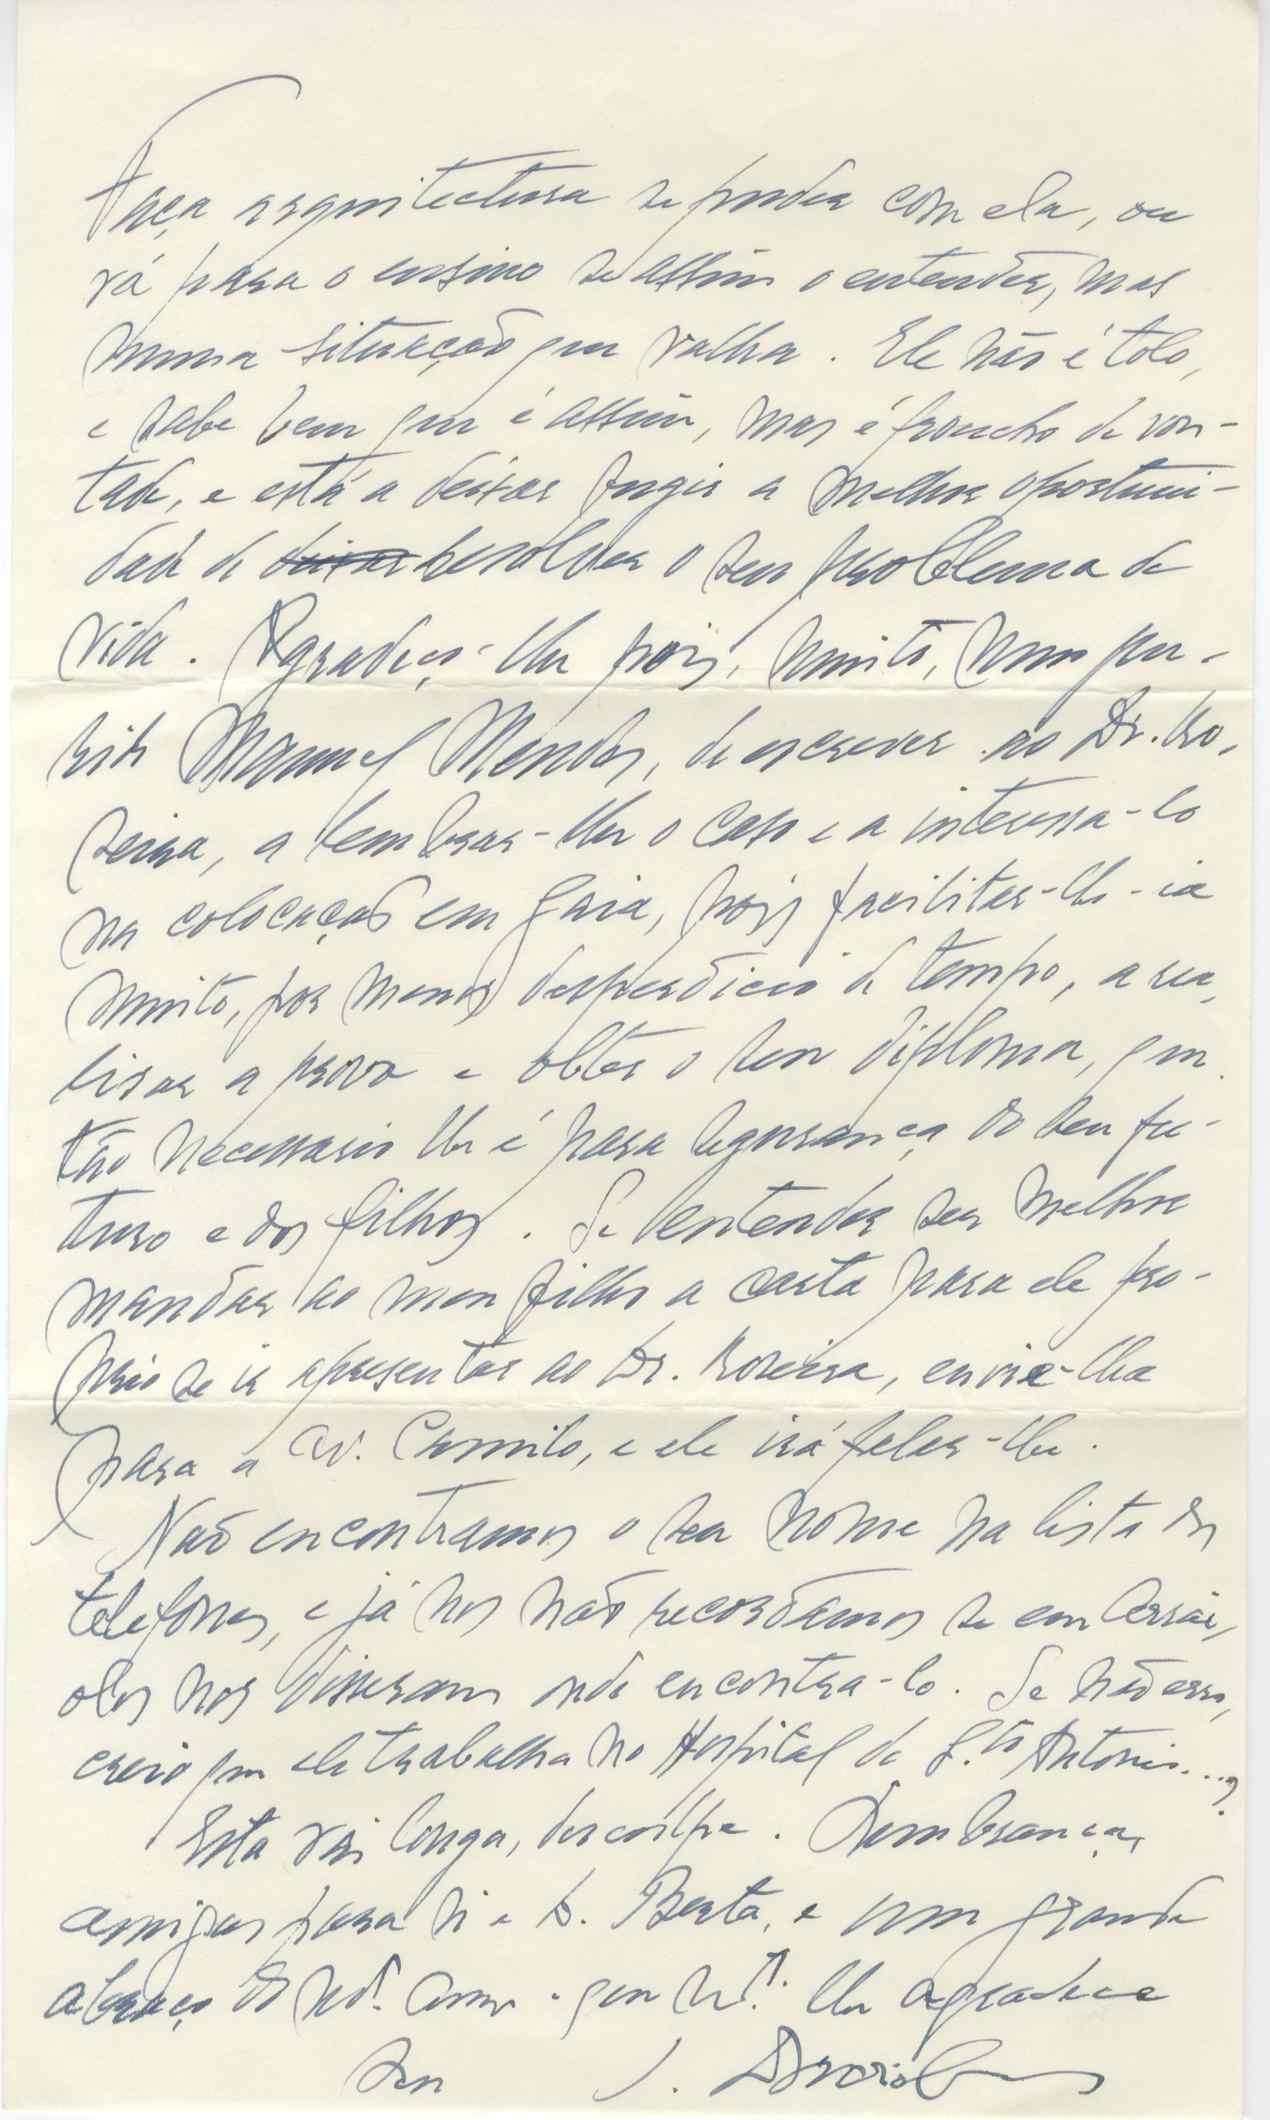 Faça arquitectura se puder com ela, ou
vá para o ensino se assim o entender, mas
numa situação que valha. Ele não é tolo,
e sabe bem que é assim, mas é frouxo de von-
tade, e está a deixar fugir a melhor oportuni-
dade de resolver o seu problema de
vida. Agradeço-lhe pois, muito, meu que-
rido Manuel Mendes, de escrever ao Dr. Mo-
reira, a lembrar-lhe o caso e a interessa-lo
na colocação em Gaia, pois facilitar-lhe-ia
muito, por menos desperdicio de tempo, a rea-
lisar a prova e obter o seu diploma, que
tão necessario lhe é para segurança do seu fu-
turo e dos filhos. Se entender ser melhor
mandar ao meu filho a carta para ele pro-
prio se ir apresentar ao Dr. Moreira, envie-lha
para a Av. Camilo, e ele irá falar-lhe.
Não encontramos o seu nome na lista dos
telefones, e já nos não recordamos se em
nos disseram onde encontra-lo. Se não erro,
creio que ele trabalha no Hospital de S.to Antonio...?
Esta vai longa, desculpe. Lembranças
amigas para si e D. Berta, e um grande
abraço do que lhe agradece
seu J.